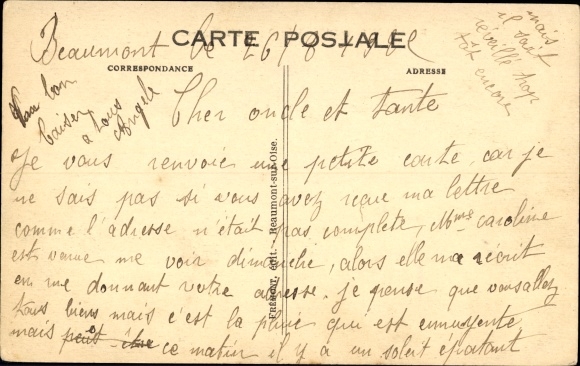 CARTE POSTALE
CORRESPONDANCE
ADRESSE
Beaumont le 26/8
Cher oncle et tante
Je vous renvoie une petite carte, car je
ne sais pas si vous avez reçue ma lettre
comme l'adresse n'était pas complète, Mme Caroline
est venue me voir dimanche, alors elle m'a récrit
en me donnant votre adresse. je pense que vous allez
tous biens mais c'est la pluie qui est ennuyente
mais ce matin il y a un soleil épatant
mais
il s'est
reveillé trop
tôt encore
bon
baiser
a tous
Angèle
FRÉMONT, édit. - Beaumont-sur-Oise.